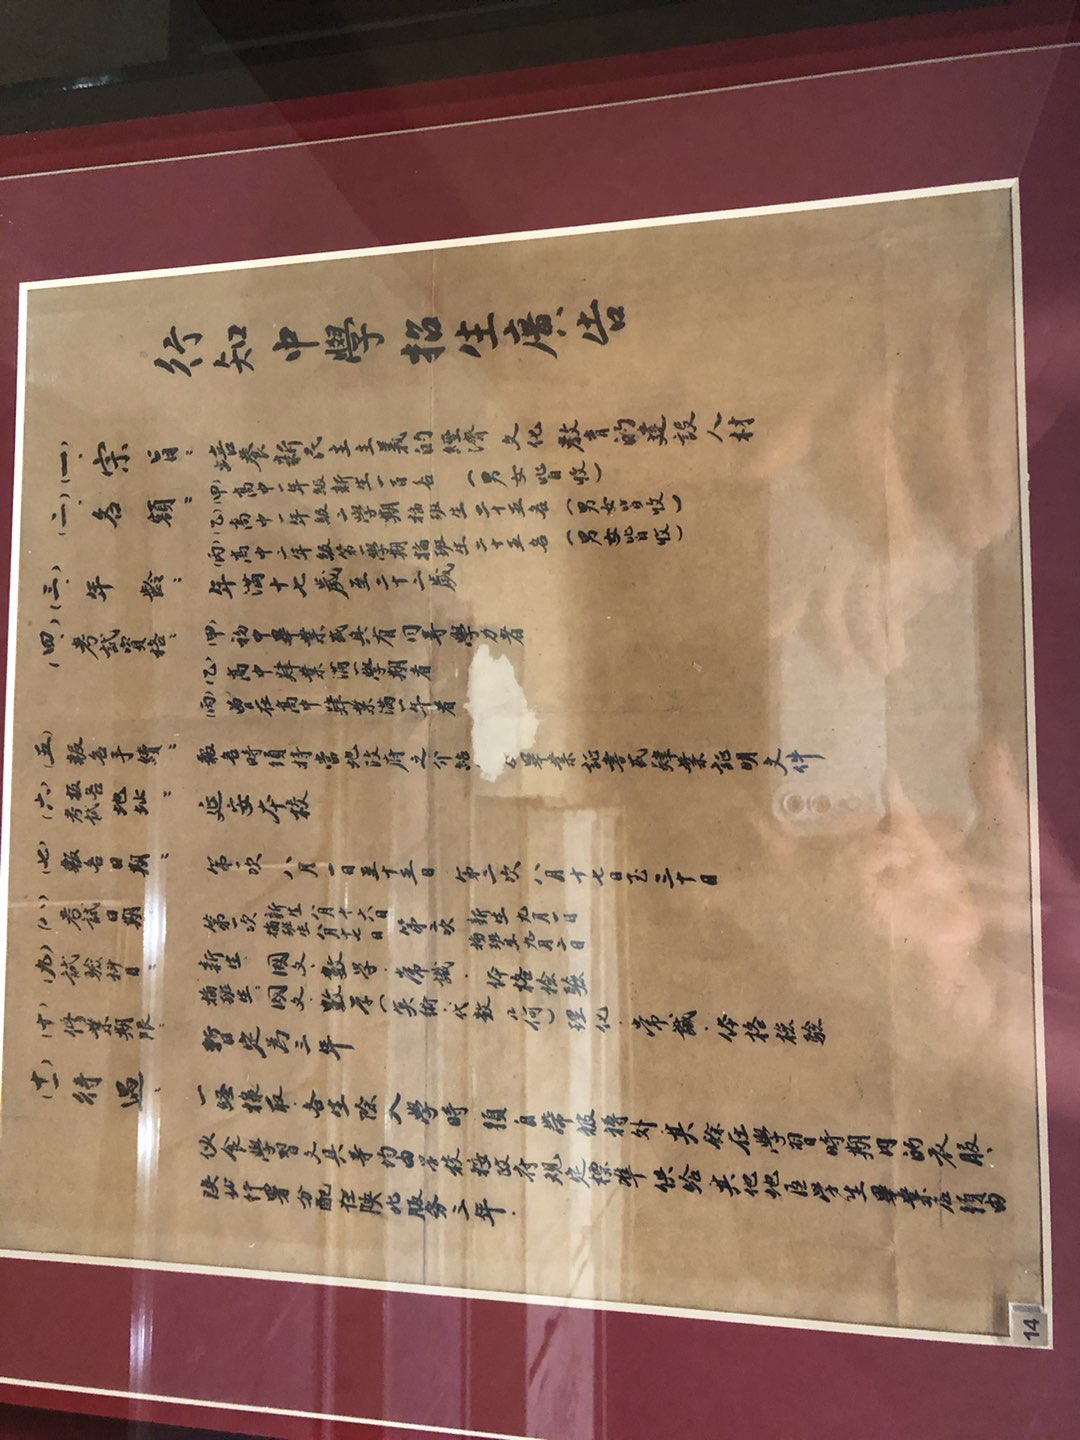 行知中學招生廣告
(一)宗旨：培養新民主主義的經濟文化教育的建設人材
(二)名額：(甲)高中一年級新生一百名(男女皆收)
(乙)高中一年級二學期插班生二十五名(男女皆收)
(丙)高中二年級第一學期插班生二十五名(男女皆收)
(三)年齡：年滿十七歲至二十二歲
(四)考試資格：(甲)初中畢業或具有同等學力者
(乙)高中肄業滿一學期者
(丙)曾在高中肄業滿一年者
(五)報名手續：報名時須持當地政府之介紹 畢業証書或肄業証明文件
(六)報名考試地址：延安本校
(七)報名日期：第一次八月一日至十五日 第二次八月十七日至三十日
(八)考試日期 第一次新生八月十六日 第二次新生九月一日
插班生八月十七日 插班生九月二日
(九)試驗科目：新生 國文、數學、常識、体格檢驗
插班生：國文、數學(算術、代數、几何)理化、常識、体格檢驗
(十)修業期限、暫定為三年
(十一)待遇、一経錄取、各生除入學時須自帶被褥外其餘在學習時期内的衣服、
伙食學習文具等均由学校按政府規定標準供給其他地区学生畢業后須由
陝北行署分配在陝北服務二年.
14